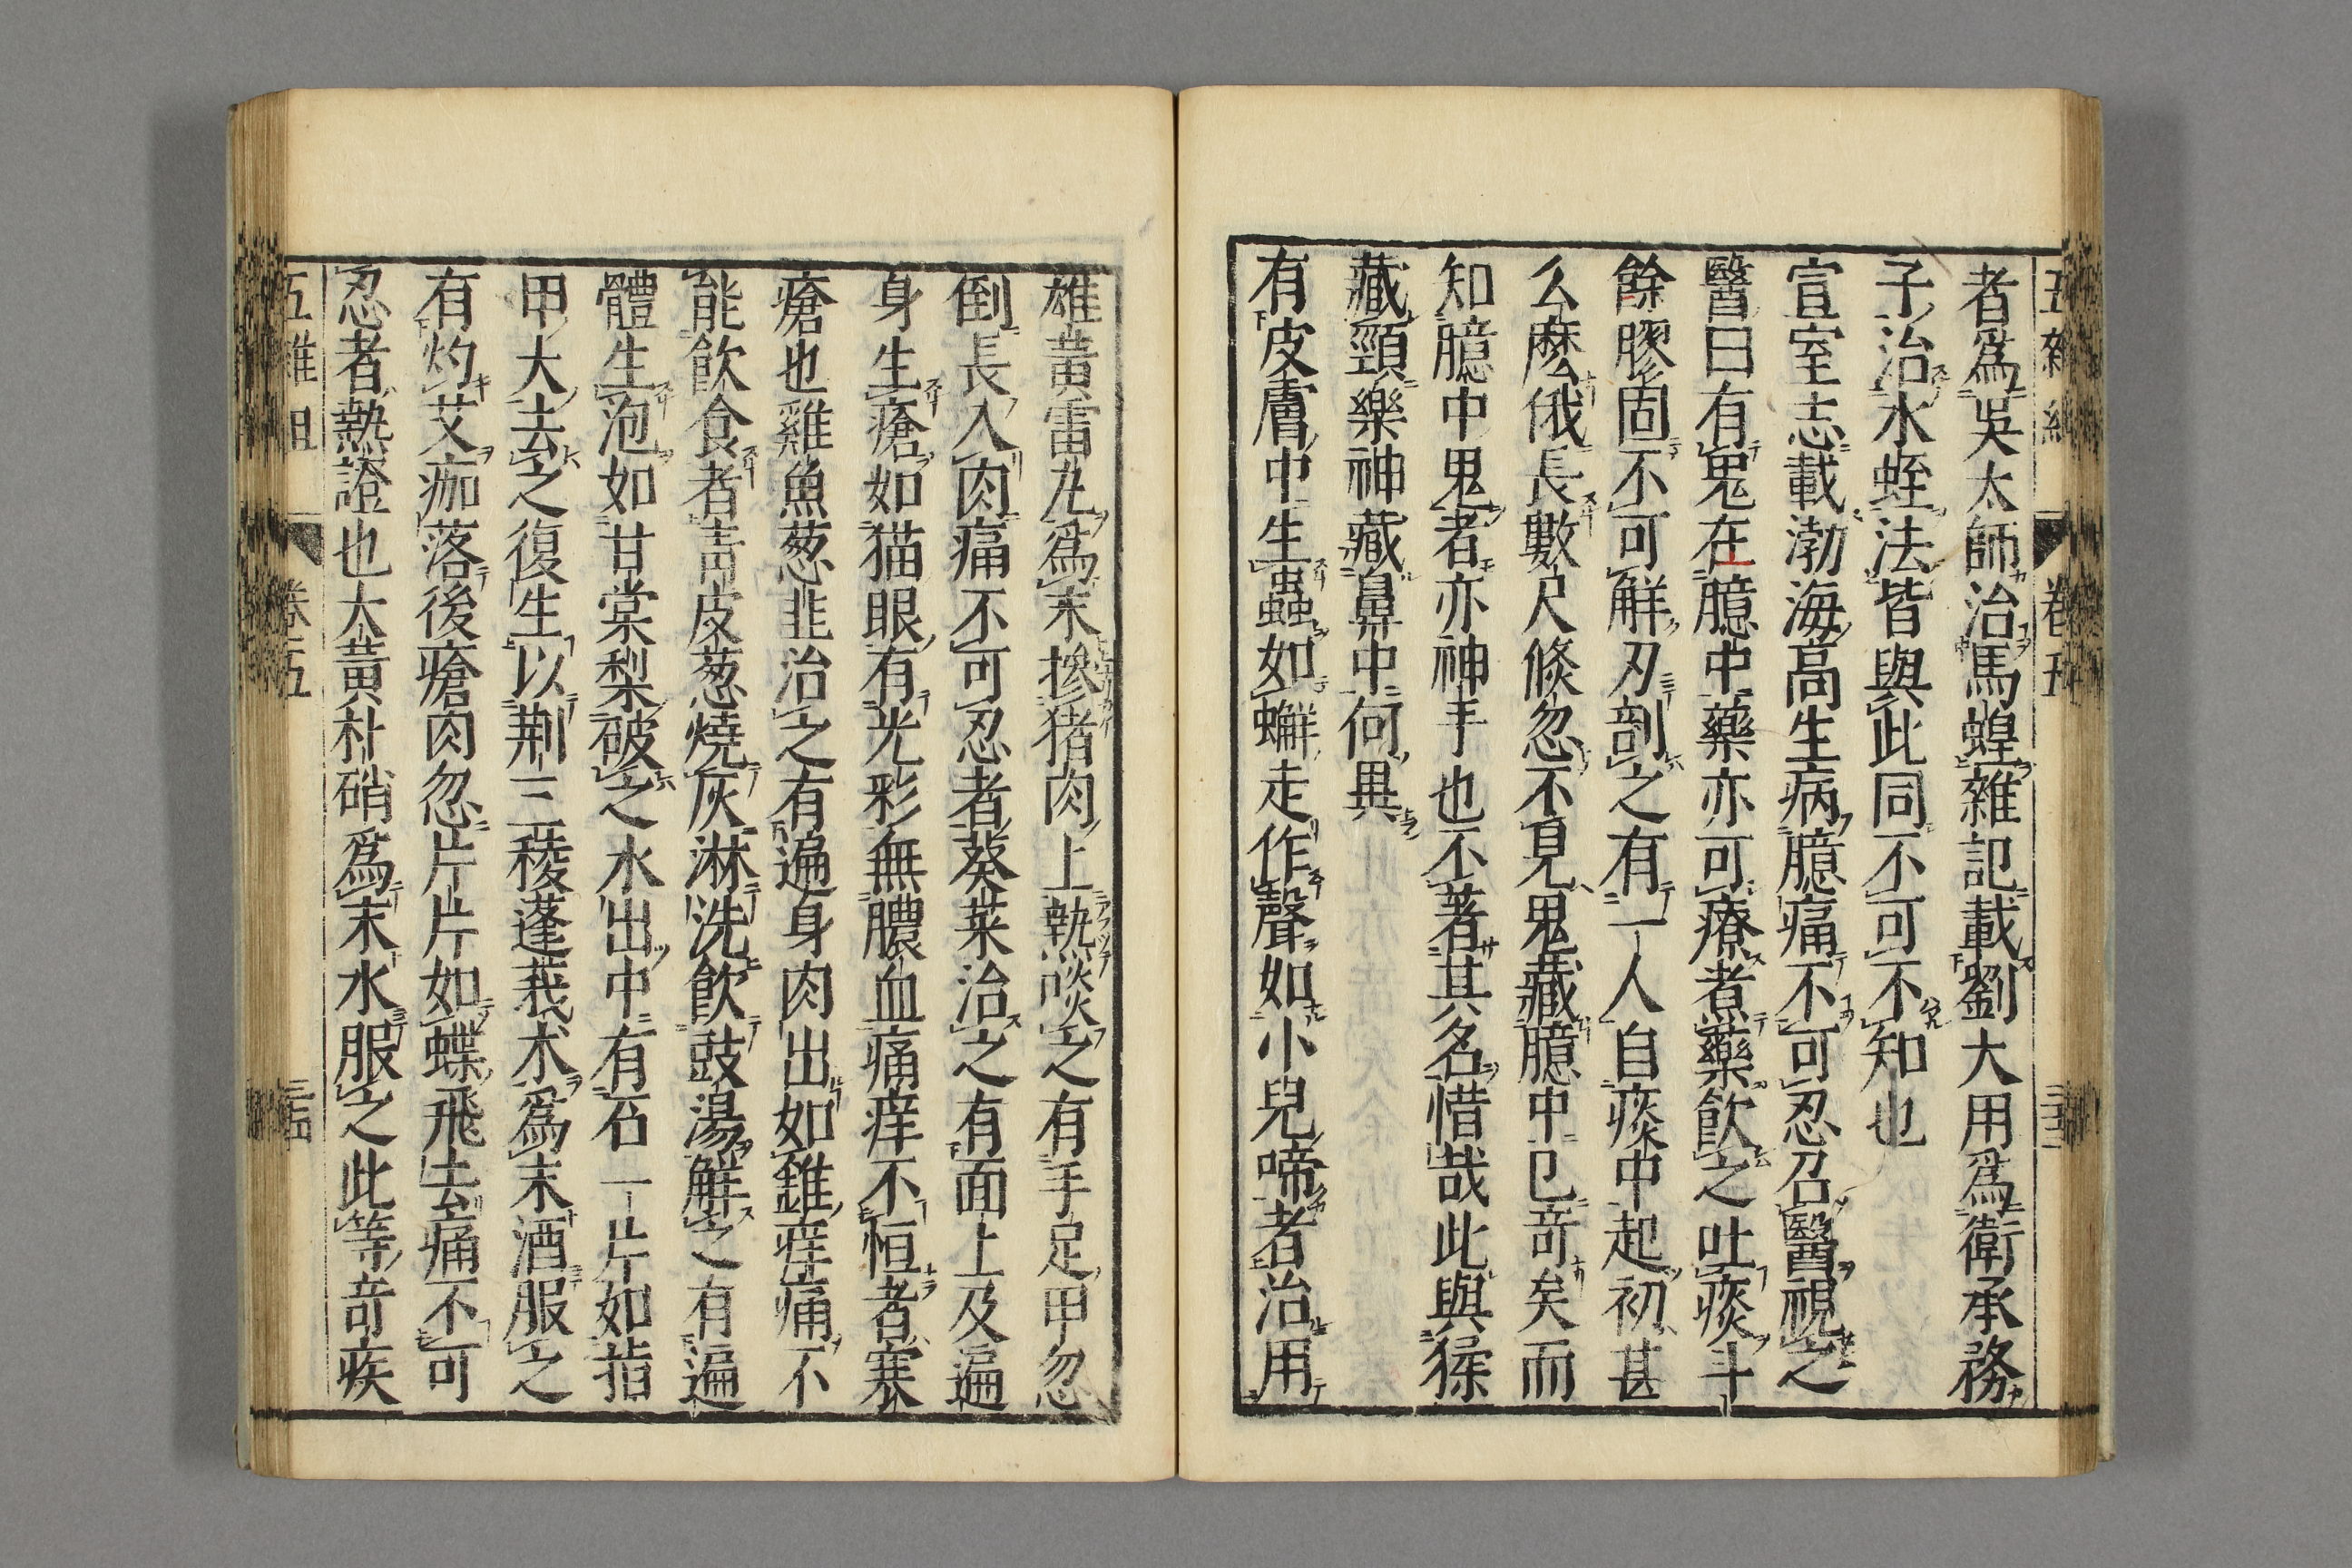 者爲吳太師治馬蝗雜記載劉大用爲衛承務
子治水蛭法皆與此同不可不知也
宣室志載渤海高生病臆痛不可忍召醫視之
醫曰有鬼在臆中藥亦可療煮藥飲之吐痰斗
餘膠固不可解刃剖之有一人自痰中起初甚
么麽俄長數尺倐忽不見鬼藏臆中已竒矣而
知臆中鬼者亦神手也不著其名惜哉此與猱
藏頸樂神藏鼻中何異
有皮膚中生蟲如蠏走作聲如小兒啼者治用
雄黃雷丸爲末摻猪肉上熱啖之有手足甲忽
倒長入肉痛不可忍者葵菜治之有面上及遍
身生瘡如猫眼有光彩無膿血痛痒不恒者寒
瘡也雞魚葱韭治之有遍身肉出如錐痒痛不
能飲食者青皮葱燒灰淋洗飲豉湯解之有遍
體生泡如甘棠梨破之水出中有石一片如指
甲大去之復生以荆三稜蓬莪朮爲末酒服之
有灼艾痂落後瘡肉忽片片如蝶飛去痛不可
忍者熱證也大黃朴硝爲末水服之此等竒疾
五雜組 卷五